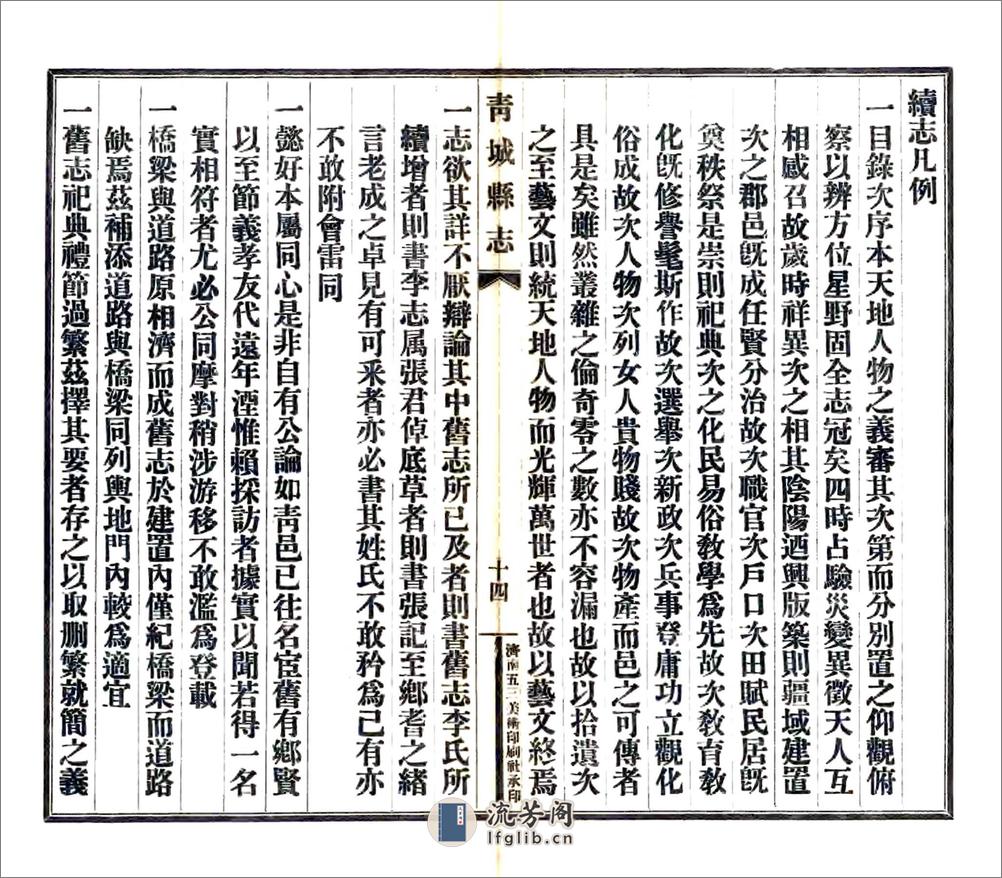 續志凡例
一目錄次序本天地人物之義審其次第而分別置之仰觀俯
察以辨方位星野固全志冠矣四時占驗災變異徵天人互
相感召故歲時祥異次之相其陰陽迺興版築則疆域建置
次之郡邑旣成任賢分治故次職官次戶口次田賦民居旣
奠秩祭是崇則祀典次之化民易俗敎學爲先故次敎育敎
化旣修譽髦斯作故次選舉次新政次兵事登庸功立觀化
俗成故次人物次列女人貴物賤故次物產而邑之可傳者
具是矣雖然叢雜之倫奇零之數亦不容漏也故以拾遺次
之至藝文則統天地人物而光輝萬世者也故以藝文終焉
靑城縣志
十四
濟南五三美術印刷社承印
一志欲其詳不厭辯論其中舊志所已及者則書舊志李氏所
續增者則書李志属張君倬底草者則書張記至鄉耆之緒
言老成之卓見有可采者亦必書其姓氏不敢矜爲已有亦
不敢附會雷同
一懿好本屬同心是非自有公論如靑邑已往名宦舊有鄉賢
以至節義孝友代遠年湮惟賴採訪者據實以聞若得一名
實相符者尤必公同摩對稍涉游移不敢濫爲登載
一橋梁與道路原相濟而成舊志於建置內僅紀橋梁而道路
缺焉茲補添道路與橋梁同列輿地門內較爲適宜
一舊志祀典禮節過繁茲擇其要者存之以取删繁就簡之義
流芳阁
lfglib.cn